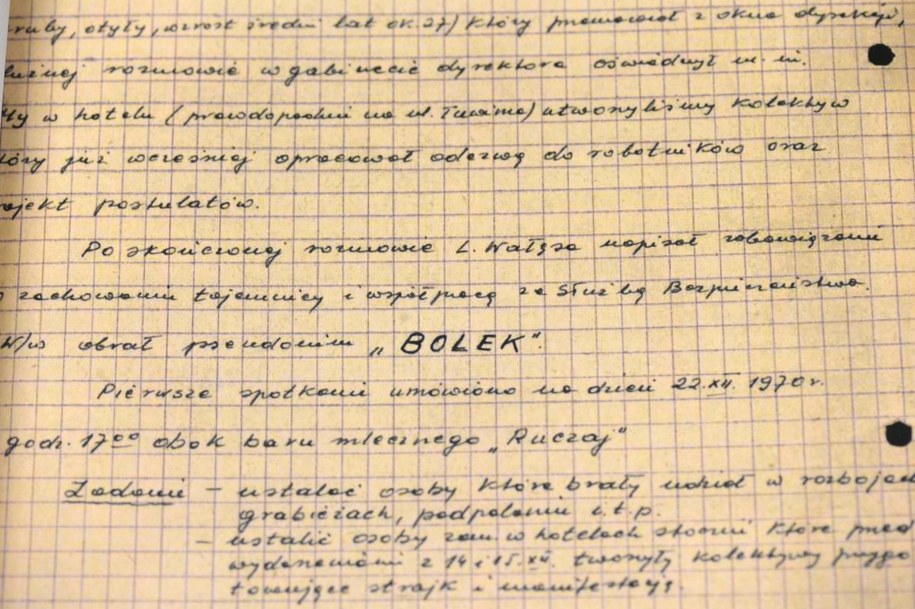 ruby, otyły, wzrost średni lat ok. 27) który przemawiał z okna dyrekcji,
luźnej rozmowie w gabinecie dyrektora oświadczył m. in.
My w hotelu (prawdopodobnie na ul. Tuwima) utworzyliśmy kolektyw
tóry już wcześniej opracował odezwę do robotników oraz
ojekt postulatów.
Po skończonej rozmowie L. Wałęsa napisał zobowiązanie
o zachowaniu tajemnicy i współpracę ze Służbą Bezpieczeństwa.
W/w obrał pseudonim „BOLEK".
Pierwsze spotkanie umówiono na dzień 22.XII. 1970 r.
godz. 17⁰⁰ obok baru mlecznego „Ruczaj"
Zadanie – ustalać osoby które brały udział w rozbojach
grabieżach, podpaleniu i.t.p.
– ustalić osoby zam. w hotelach stoczni które przed
wydarzeniami z 14 i 15.XII. tworzyły kolektywy przygo
towujące strajk i manifestację.